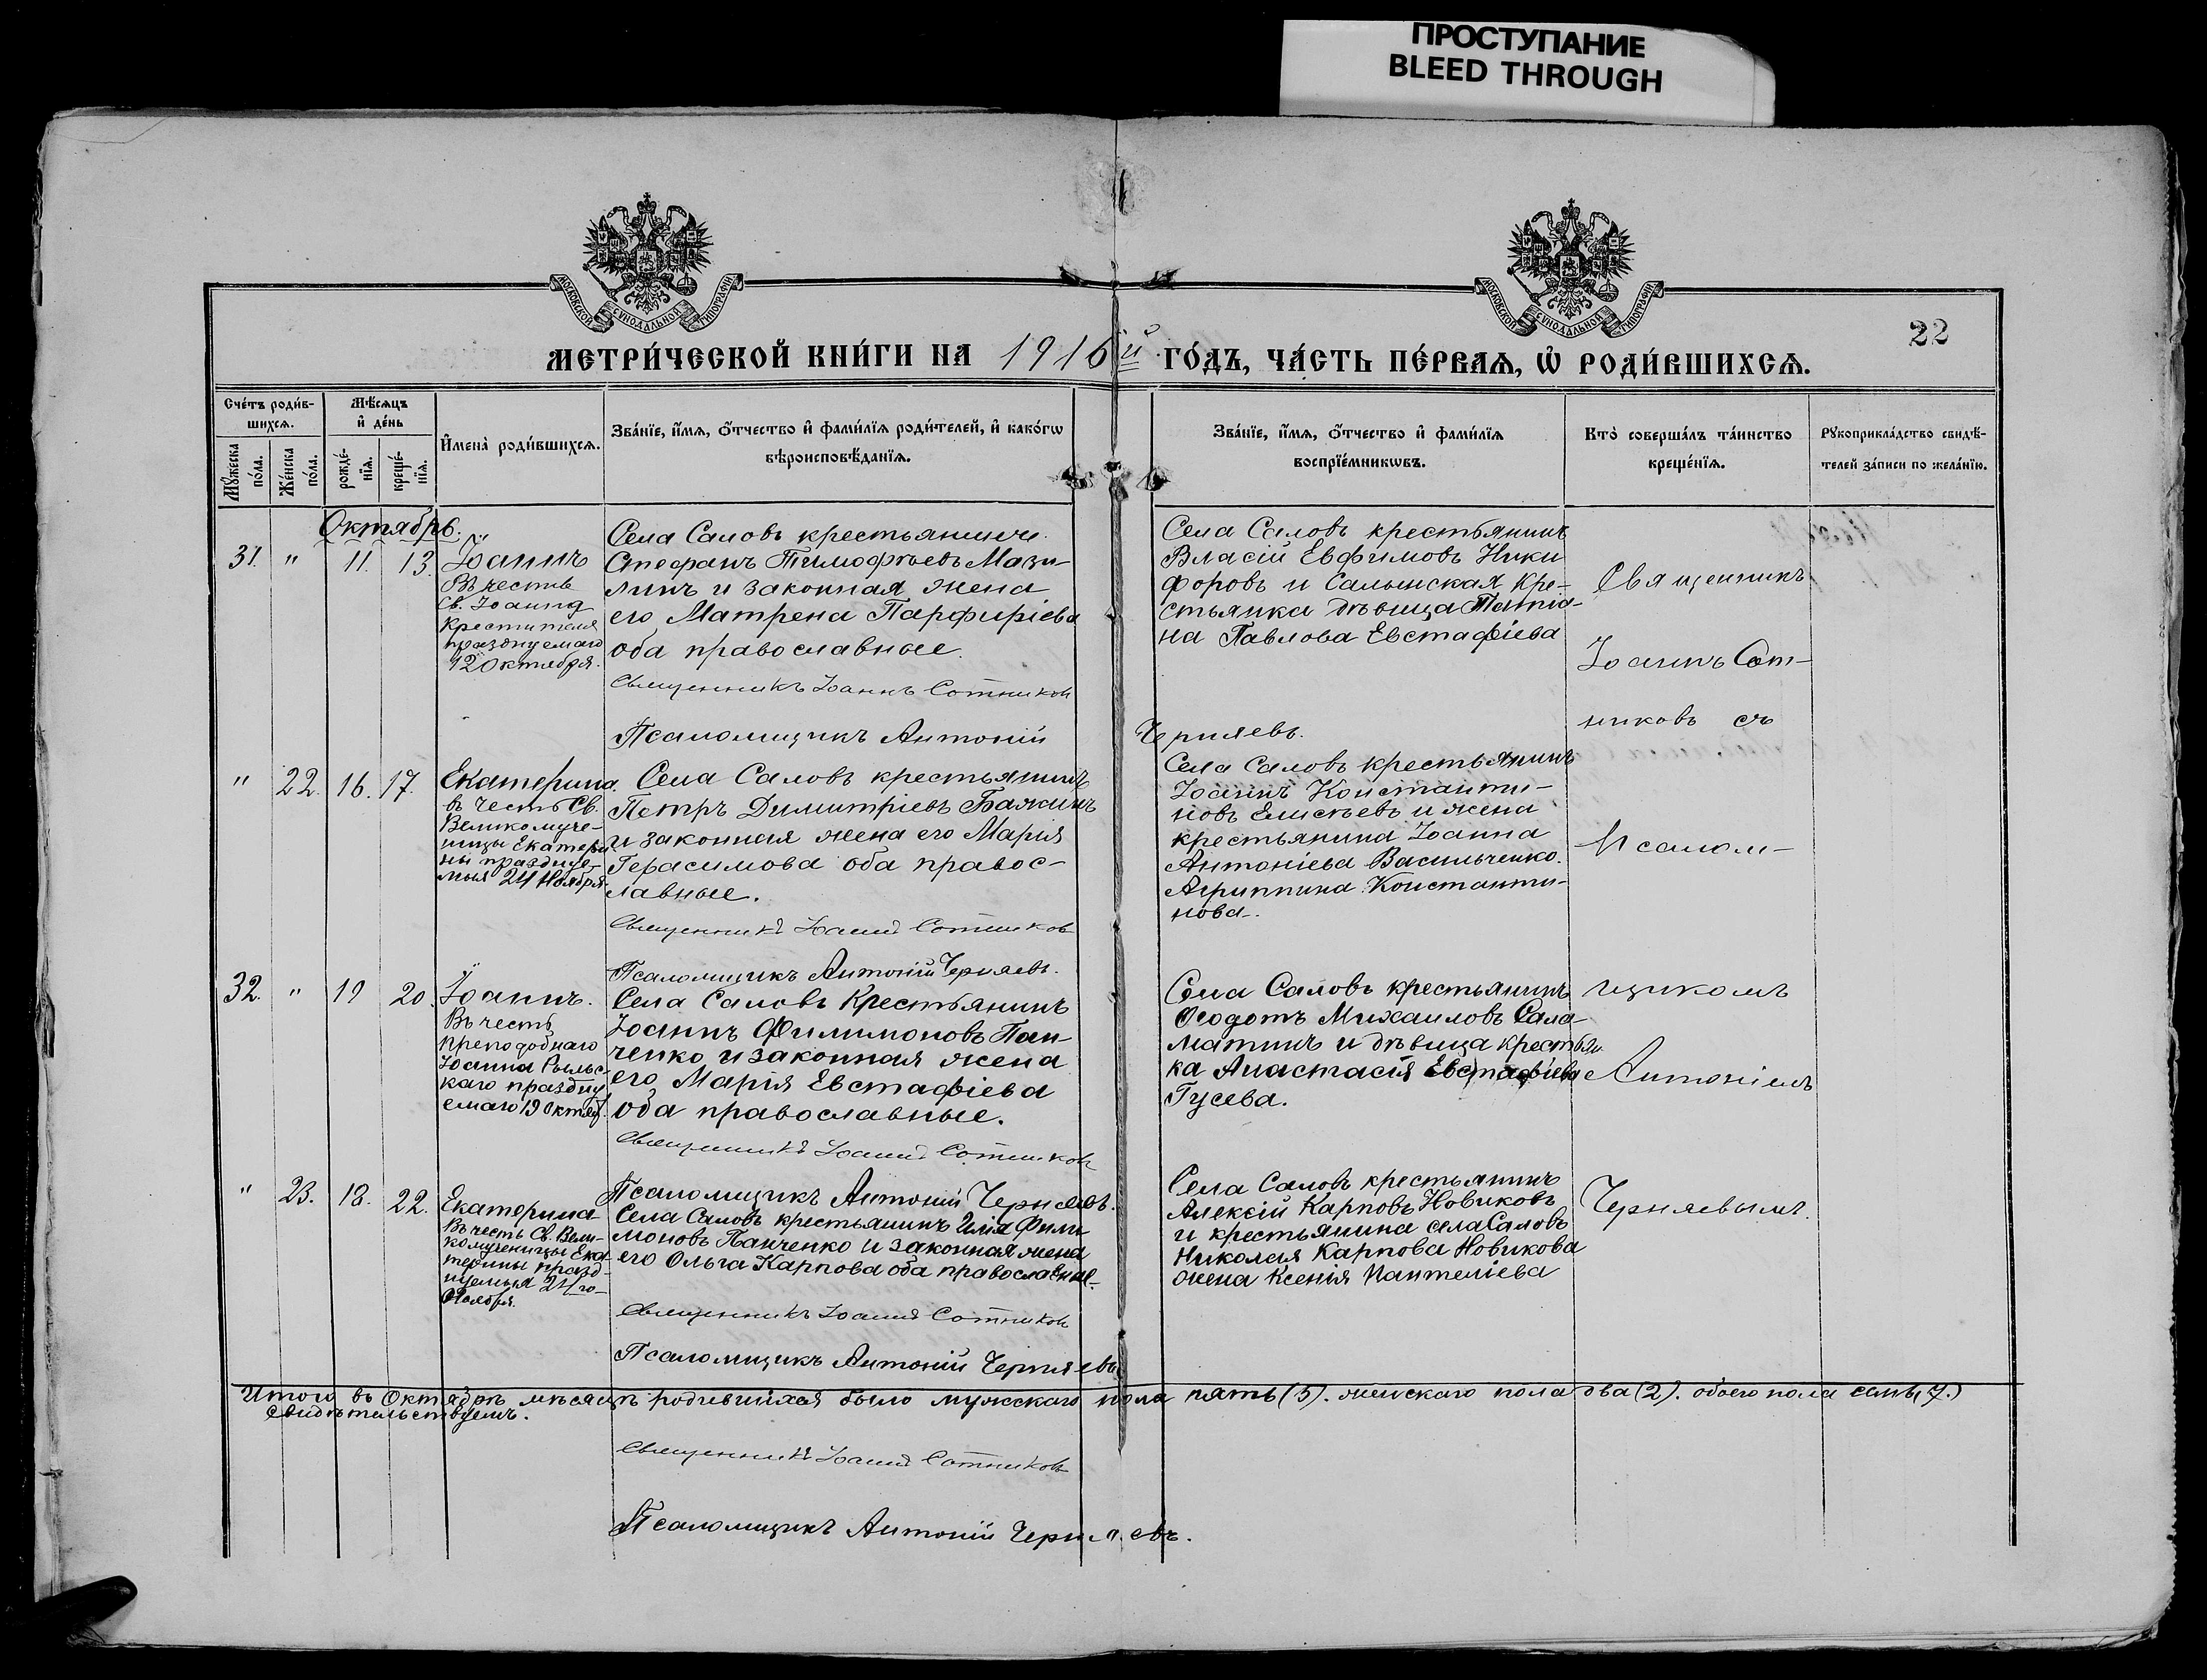 ПРОСТУПАНИЕ
BLEED THROUGH
МОСКОВСКОЙ СѴНОДАЛЬНОЙ ТИПОГРАФІИ
МОСКОВСКОЙ СѴНОДАЛЬНОЙ ТИПОГРАФІИ
22
МЕТРИ́ЧЕСКОЙ КНИ́ГИ НА 1916й ГО́ДЪ, ЧА́СТЬ ПЕ́РВАѦ, Ѡ҆ РОДИ́ВШИХСѦ.
Сче́тъ роди́в-
шихсѧ.
Мѣ́сѧцъ
и҆ де́нь
Мꙋ́жеска
по́ла.
Же́нска
по́ла.
рожде́-
нїѧ.
креще́-
нїѧ.
И҆мена̀ роди́вшихсѧ.
Зва́нїе, и҆́мѧ, ѻ҆́тчество и҆ фами́лїѧ роди́телей, и҆ како́гѡ
вѣроисповѣ́данїѧ.
Зва́нїе, и҆́мѧ, ѻ҆́тчество и҆ фами́лїѧ
воспрїе́мникѡвъ.
Кто̀ соверша́лъ та́инство
креще́нїѧ.
Рꙋкоприкла́дство свидѣ́-
телей за́писи по жела́нїю.
Октябрь.
31. " 11. 13.
Іоаннъ
Въ честь
Св. Іоанна
Крестителя
празднуемаго
12 Октября.
Села Саловъ крестьянинъ
Стефанъ Тимофѣевъ Мази-
линъ и законная жена
его Матрена Парфиріева
оба православные.
Священникъ Іоаннъ Сотников
Псаломщикъ Антоній Черняевъ.
Села Саловъ крестьянинъ
Власій Евфимовъ Ники
форовъ и Салынская кре-
стьянка дѣвица Татіа-
на Павлова Евстафіева
Священникъ
Іоаннъ Сот-
никовъ съ
" 22. 16. 17.
Екатерина.
въ честь Св.
Великомуче-
ницы Екатери
ны праздуе-
мыя 24 Ноября.
Села Саловъ крестьянинъ
Петръ Димитріевъ Бажинъ
и законная жена его Марія
Герасимова оба правос-
лавные.
Священникъ Іоаннъ Сотников
Псаломщикъ Антоній Черняевъ.
Села Саловъ крестьянинъ
Іоаннъ Константи-
новъ Елисѣевъ и жена
крестьянина Іоанна
Антоніева Васильченко.
Агриппина Константи-
нова.
Псалом-
32. " 19 20.
Іоаннъ.
Въ честь
преподобнаго
Іоанна Рыльс-
каго праздну
емаго 19 Октяб.
Села Саловъ Крестьянинъ
Іоаннъ Филимоновъ Пан-
ченко и законная жена
его Марія Евстафіева
оба православные.
Священникъ Іоаннъ Сотников
Псаломщикъ Антоній Черняевъ.
Села Саловъ крестьянинъ
Ѳеодотъ Михаиловъ Сала-
матинъ и дѣвица крестьян
ка Анастасія Евстафіева
Гусева.
щикомъ
Антоніемъ
" 23. 18. 22.
Екатерина
Въ честь Св. Вели-
комученицы Ека-
терины празд-
нуемыя 24го
Ноября.
Села Саловъ крестьянинъ Илія Фили
моновъ Панченко и законная жена
его Ольга Карпова оба православные.
Священникъ Іоаннъ Сотников
Псаломщикъ Антоній Черняевъ
Села Саловъ крестьянинъ
Алексій Карповъ Новиковъ
и крестьянина села Саловъ
Николая Карпова Новикова
жена Ксенія Пантеліева
Черняевымъ.
Итого въ Октябрѣ мѣсяцѣ родившихся было мужскаго пола пять (5). женскаго пола два (2). обоего пола семь (7.)
Свидѣтельствуемъ.
Священникъ Іоаннъ Сотниковъ
Псаломщикъ Антоній Черняевъ.